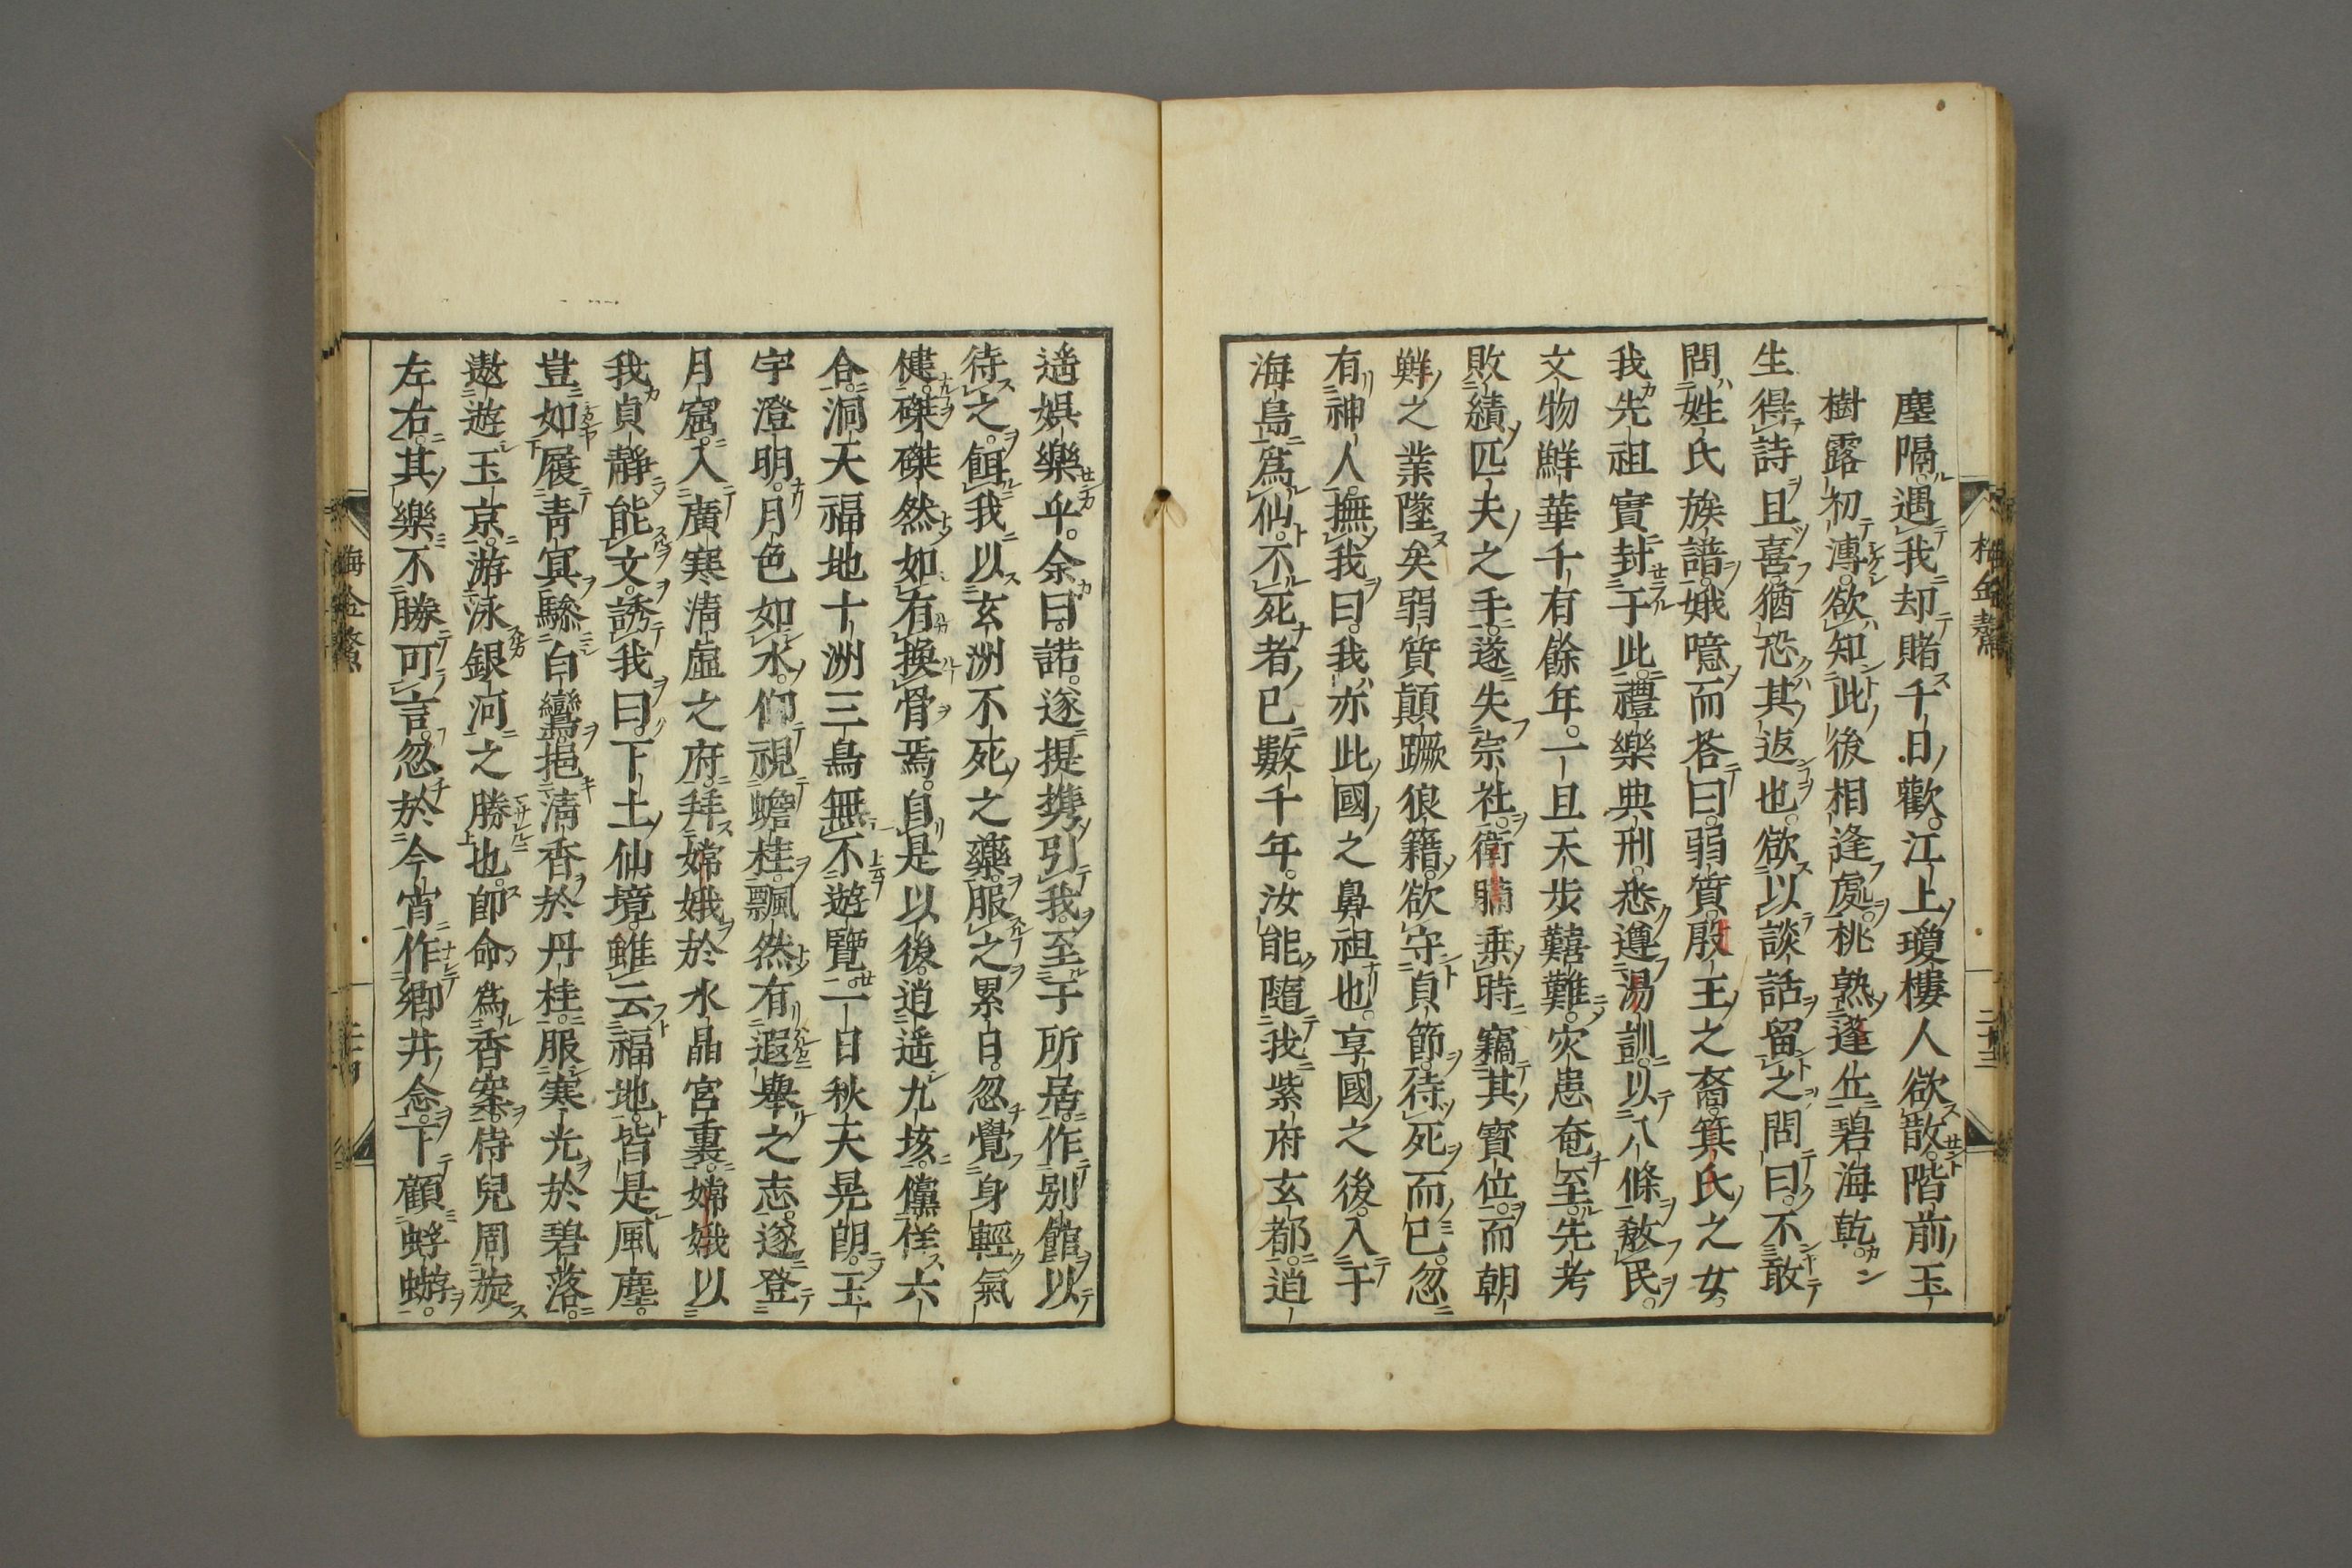 塵隔遇我却賭千日歡江上瓊樓人欲散階前玉
樹露初漙欲知此後相逢處桃熟蓬丘碧海乾
生得詩且喜猶恐其返也欲以談話留之問曰不敢
問姓氏族譜娥噫而荅曰弱質殷王之裔箕氏之女
我先祖實封于此禮樂典刑悉遵湯訓以八條教民
文物鮮華千有餘年一旦天步艱難灾患奄至先考
敗績匹夫之手遂失宗社衛瞞乗時竊其寳位而朝
鮮之業墜矣弱質顛蹶狼籍欲守貞節待死而已忽
有神人撫我曰我亦此國之鼻祖也享國之後入于
海島爲仙不死者已數千年汝能隨我紫府玄都逍
遙娯樂乎余曰諾遂提携引我至于所居作别館以
待之餌我以玄洲不死之藥服之累日忽覺身輕氣
健磔磔然如有換骨焉自是以後逍遙九垓儻佯六
合洞天福地十洲三島無不遊覽一日秋天晃朗玉
宇澄明月色如水仰視蟾桂飄然有遐舉之志遂登
月窟入廣寒清虛之府拜嫦娥於水晶宮裏嫦娥以
我貞靜能文誘我曰下土仙境雖云福地皆是風塵
豈如履青冥驂白鸞挹清香於丹桂服寒光於碧落
遨遊玉京游泳銀河之勝也即命爲香案侍兒周旋
左右其樂不勝可言忽於今宵作鄉井念下顧蜉蝣
梅金鰲
二十三
梅金鰲